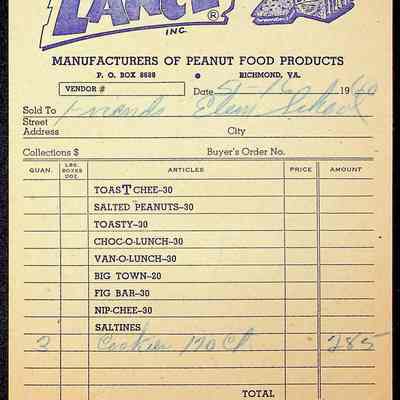 LANCE ®
INC.
MANUFACTURERS OF PEANUT FOOD PRODUCTS
P. O. BOX 8688 • RICHMOND, VA.
VENDOR # Date 1960
Sold To Friends Elem School
Street
Address City
Collections $ Buyer's Order No.
QUAN. LBS. BOXES DOZ. ARTICLES PRICE AMOUNT
TOASTCHEE-30
SALTED PEANUTS-30
TOASTY-30
CHOC-O-LUNCH-30
VAN-O-LUNCH-30
BIG TOWN-20
FIG BAR-30
NIP-CHEE-30
SALTINES
3 Cookies 170 Ct 285
TOTAL